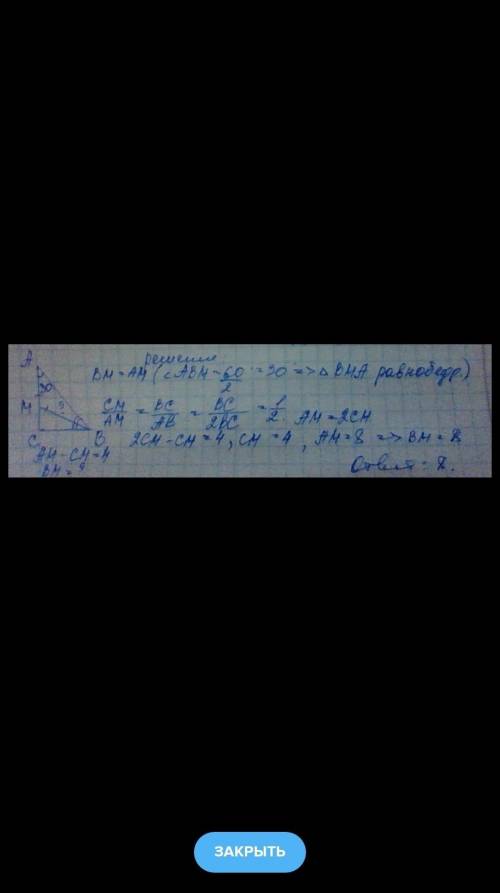 решение
A
BM = AM (∠ABM = 60/2 = 30° => △ BMA равнобедр.)
30
M
CM/AM = BC/AB = BC/2BC = 1/2. AM = 2CM
C B
2CM - CM = 4, CM = 4, AM = 8 => BM = 8
AM - CM = 4
BM = ?
Ответ: 8.
ЗАКРЫТЬ